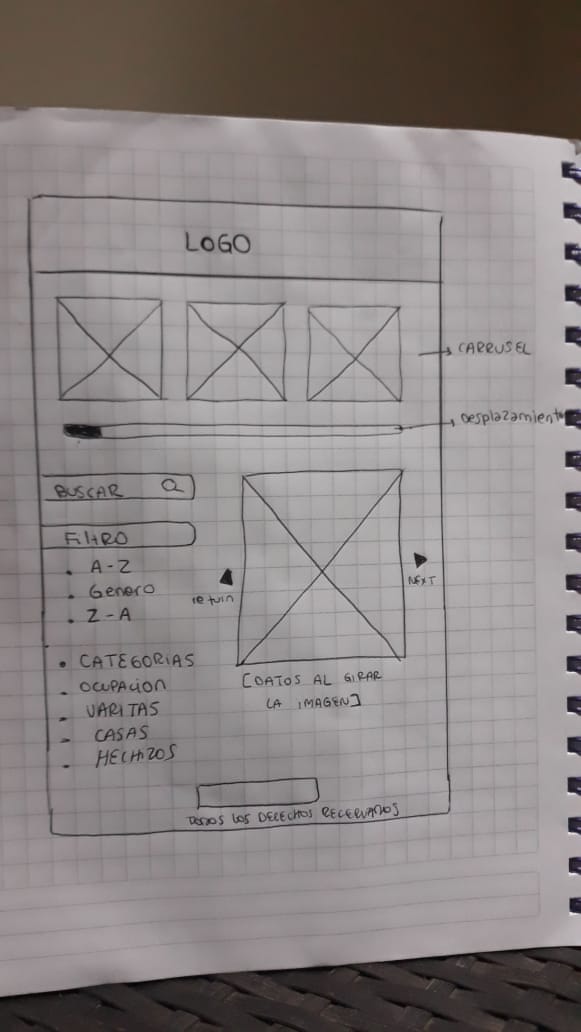 LOGO
CARRUSEL
Desplazamiento
BUSCAR
FiltRO
A-Z
Genero
Z-A
return
NEXT
CATEGORIAS
OCUPACION
VARITAS
CASAS
HECHIZOS
[DATOS AL GIRAR
LA IMAGEN]
TODOS LOS DERECHOS RECERVADOS